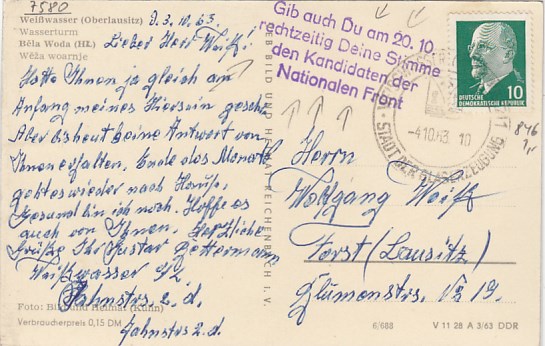 7580
Weißwasser (Oberlausitz)
Wasserturm
Běła Woda (Hł.)
Wěža woarnje
D. 3.10.63.
Lieber Herr Weiß!
Hatte Ihnen ja gleich am
Anfang meines Hierseins geschr.
Aber bis heute keine Antwort von
Ihnen erhalten. Ende des Monats
geht es wieder nach Hause.
Gesund bin ich noch. Hoffe es
auch von Ihnen. Herzliche
Grüße Ihr Gustav
Weißwasser
Jahnstrs. 2. d.
Jahnstrs 2. d.
Foto: Bild und Heimat (Kühn)
Verbraucherpreis 0,15 DM
BILD UND HEIMAT REICHENBACH I. V.
Gib auch Du am 20.10.
rechtzeitig Deine Stimme
den Kandidaten der
Nationalen Front
-4.10.63. 10
STADT DER GLASERZEUGUNG
DEUTSCHE
DEMOKRATISCHE REPUBLIK
10
846
1,-
Herrn
Wolfgang Weiß
Forst (Lausitz)
Blumenstrs. № 19.
6/688
V 11 28 A 3/63 DDR